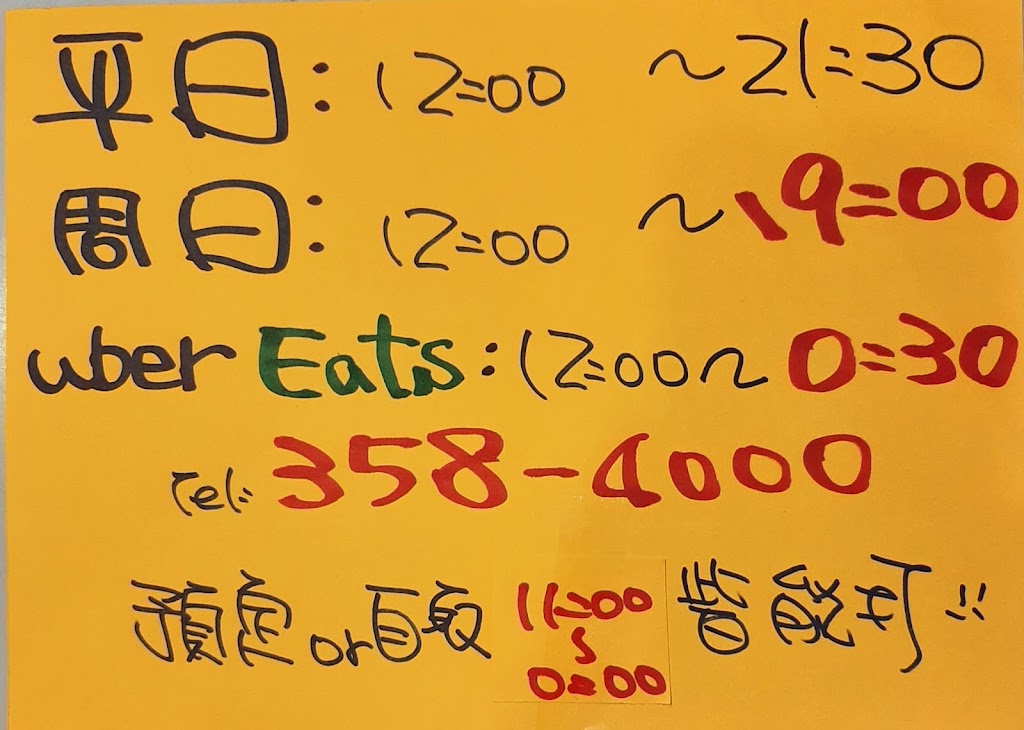 平日: 12:00 ~21:30
周日: 12:00 ~19:00
uber Eats: 12:00~0:30
Tel: 358-4000
預定or自取 11:00~0:00 皆能可!!